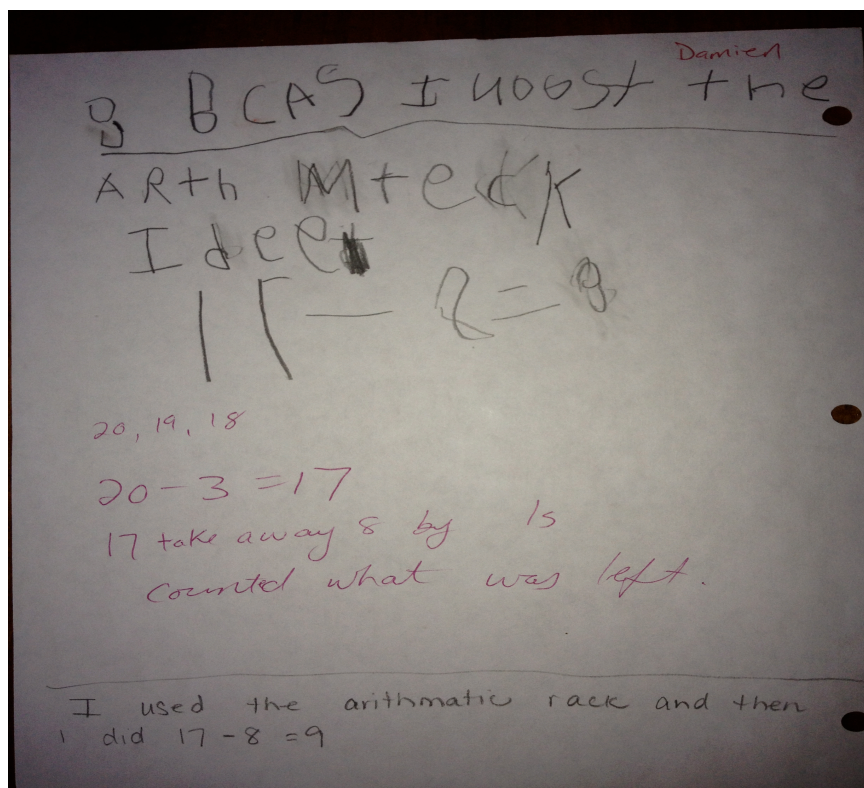 Damien
9 BCAS I uoost the
ARth Mteck
I dee
17 - 8 = 9
20, 19, 18
20 - 3 = 17
17 take away 8 by 1s
countd what was left.
I used the arithmatic rack and then
i did 17 - 8 = 9